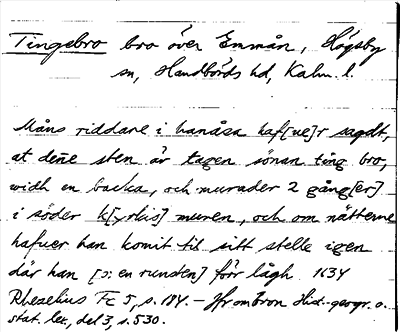 Tingebro bro över Emmån, Högsby
sn, Handbörds hd, Kalm. l.
Måns riddare i hanåsa haf[ue]r sagdt,
at deñe sten är tagen sönan ting bro,
widh en backa, och murader 2 gång[er]
i söder k[yrkis] muren, och om nätterne
hafuer han komit til sitt stelle igen
där han [ɔ: en runsten] förr lågh. 1634
Rhezelius Fc 5, s. 184. – Jfr ombron Hist.-geogr. o.
stat. lex., del 3, s. 530.